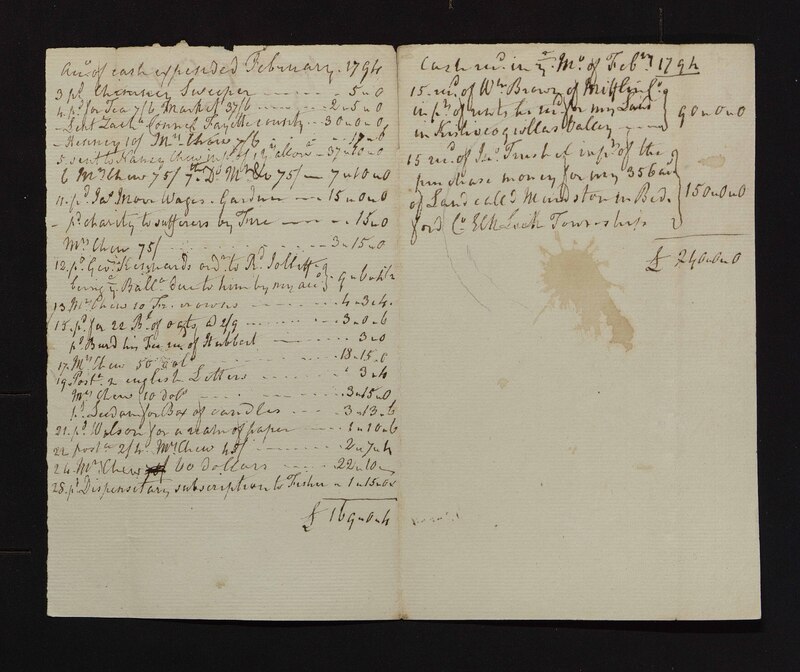 Acc.t of cash expended February 1794
3 p.d Chimney Sweeper 5 " 0
4 p.d for Tea 7/6 Market 37/6 2 " 5 " 0
- Lent Zach.a Connel Fayette county - 30 " 0 " 0
17 " 6
5 sent to Nancy Chew - 37 " 10 " 0
6 M.rs Chew 75/ 7.th D.o M.rs 75/ - 7 " 10 " 0
11. p.d Ja.s Moore Wages. Gardner - 15 " 0 " 0
- p.d charity to sufferers by Fire - 15 " 0
M.rs Chew 75/ 3 " 15 " 0
12. p.d Geo. Kennards ord.r to R.d Jolliff
being y.e Ball.e due to him by my acc.t
13 M.rs Chew 10 Fr. crowns 4 " 3 " 4
15. p.d for 22 B.s of oats @ 2/9 3 " 0 " 6
p.d Burd his Fee in of Hubbert 3 " 0
17. M.rs Chew 50 dol. 18 " 15 " 0
19. Post.e 2 english Letters 3 " 4
M.rs Chew 10 dol.s 3 " 15 " 0
p.d for Box of candles 3 " 13 " 6
21. p.d Wilson for a ream of paper 1 " 10 " 6
22 post.e 2/4. M.rs Chew 45/ 2 " 7 " 4
24 M.rs Chew 60 dollars 22 " 10 "
28. p.d Dispensitary subscription to Fisher 1 " 15 " 0
£ 169 " 0 " 4
Cash rec.d in y.e M.o of Feb.ry 1794
15 rec.d of W.m Brown of Mifflin C.o
in p.t of rents he rec.d for my Land
in Kishecoquillas Valley 90 " 0 " 0
15 rec.d of Ja.s Trusler in p.t of the
purchase money for my 356 a.
of Land call.d Maidston in Bed-
ford C.o Township 150 " 0 " 0
£ 240 " 0 " 0